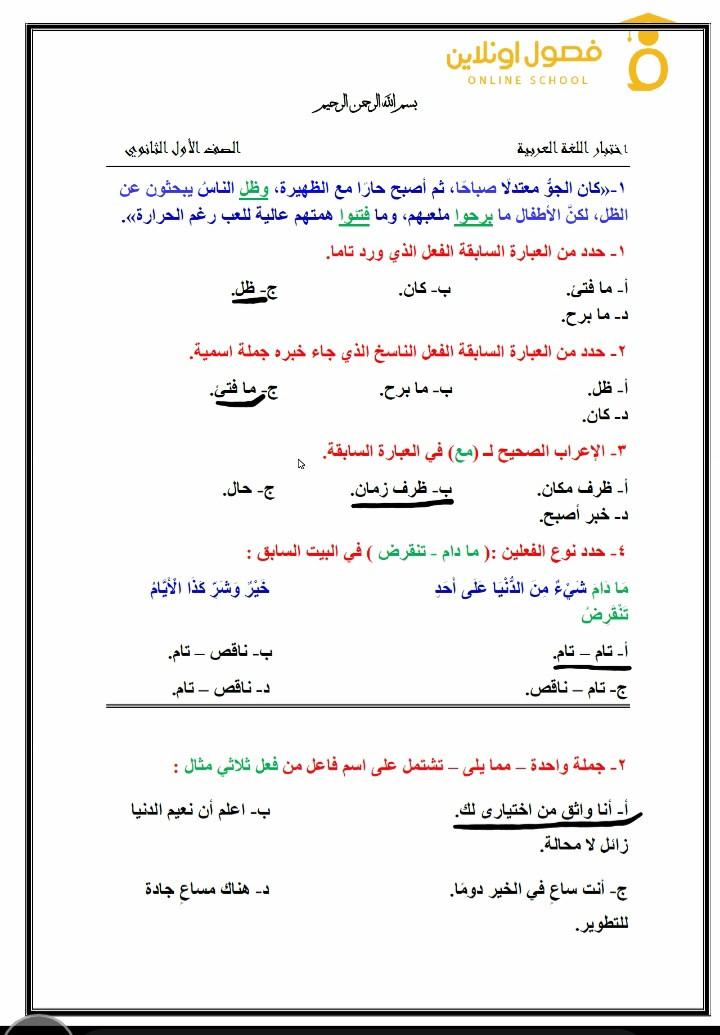 فصول اونلاين
ONLINE SCHOOL
بسم الله الرحمن الرحيم
اختبار اللغة العربية الصف الأول الثانوي
١-«كان الجوُّ معتدلًا صباحًا، ثم أصبح حارًا مع الظهيرة، وظل الناسُ يبحثون عن
الظل، لكنَّ الأطفال ما برحوا ملعبهم، وما فتئوا همتهم عالية للعب رغم الحرارة».
١- حدد من العبارة السابقة الفعل الذي ورد تاما.
أ- ما فتئ. ب- كان. ج- ظل.
د- ما برح.
٢- حدد من العبارة السابقة الفعل الناسخ الذي جاء خبره جملة اسمية.
أ- ظل. ب- ما برح. ج- ما فتئ.
د- كان.
٣- الإعراب الصحيح لـ (مع) في العبارة السابقة.
أ- ظرف مكان. ب- ظرف زمان. ج- حال.
د- خبر أصبح.
٤- حدد نوع الفعلين :( ما دام - تنقرض ) في البيت السابق :
مَا دَامَ شَيْءٌ مِنَ الدُّنْيَا عَلَى أَحَدِ خَيْرٌ وَشَرّ كَذَا الْأَيَّامُ
تَنْقَرِضُ
أ- تام – تام. ب- ناقص – تام.
ج- تام – ناقص. د- ناقص – تام.
٢- جملة واحدة – مما يلى – تشتمل على اسم فاعل من فعل ثلاثي مثال :
أ- أنا واثق من اختيارى لك. ب- اعلم أن نعيم الدنيا
زائل لا محالة.
ج- أنت ساعِ في الخير دومًا. د- هناك مساعِ جادة
للتطوير.